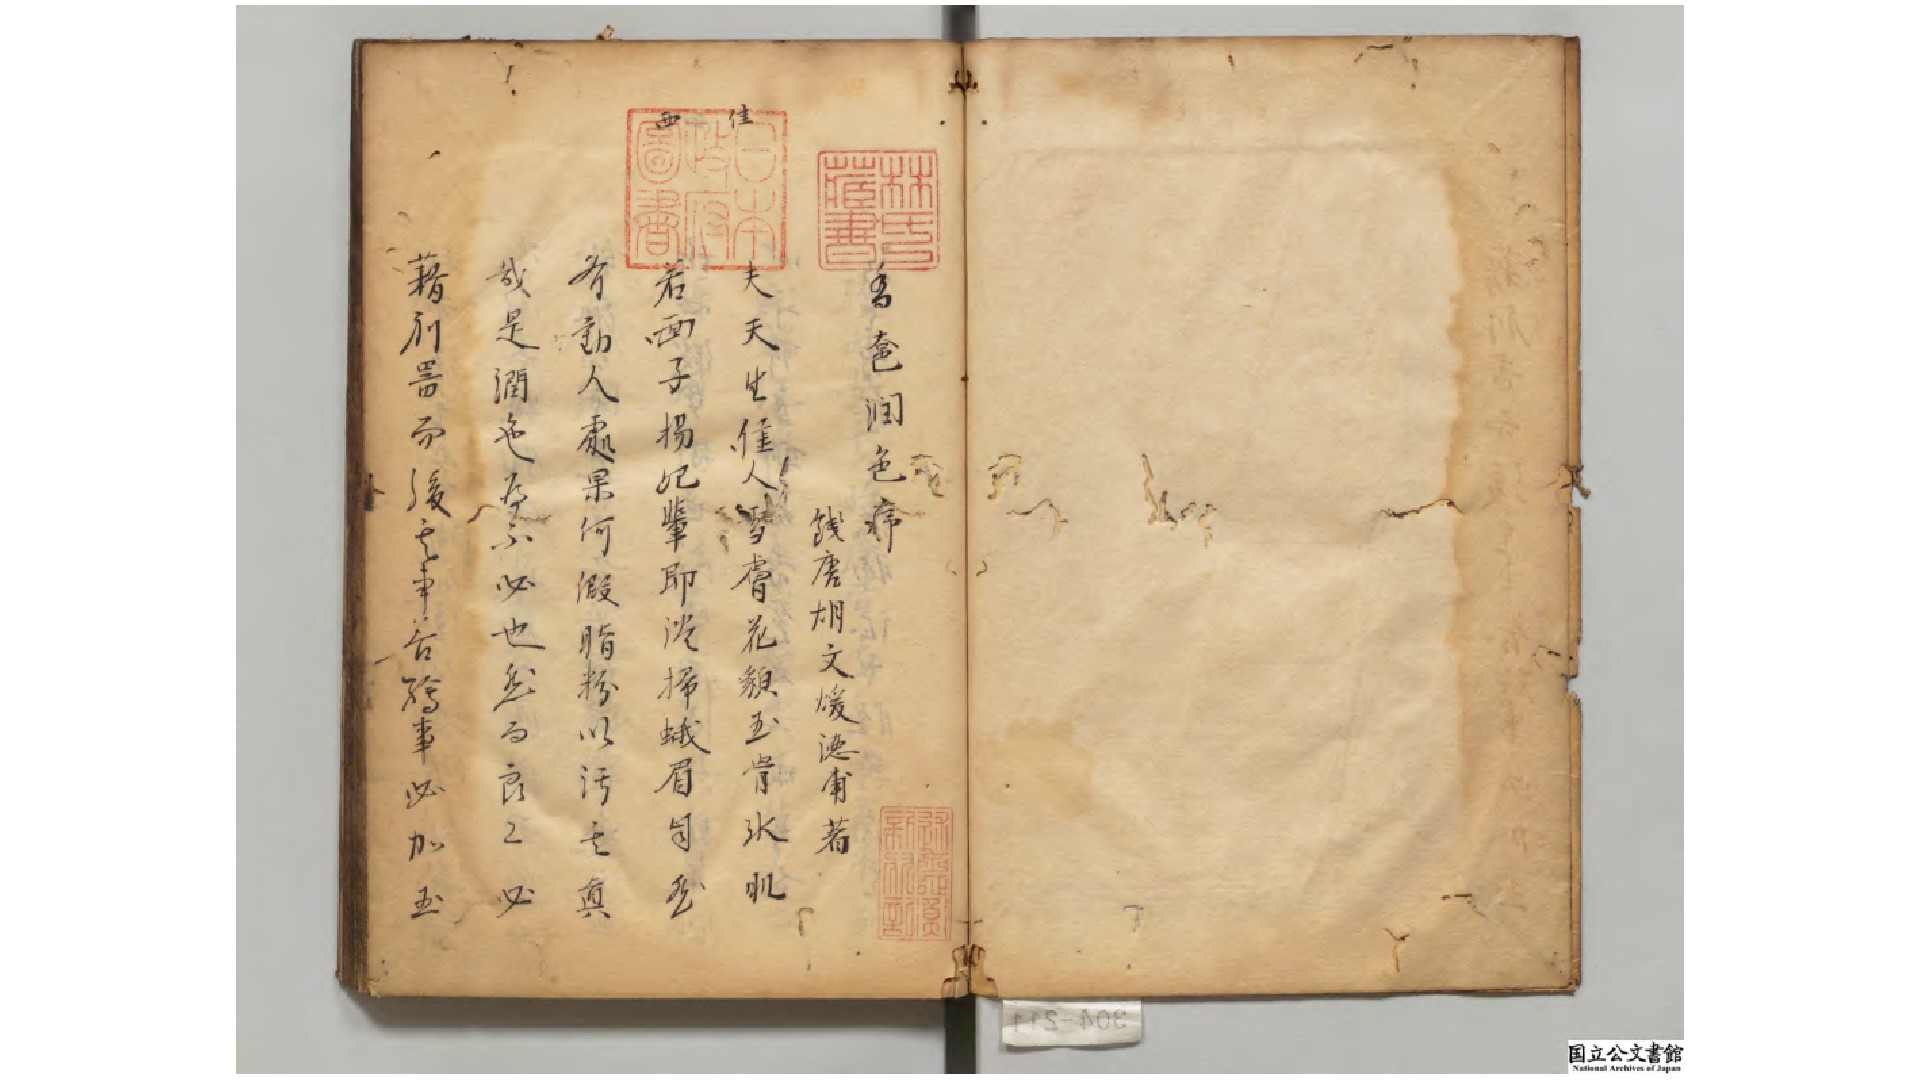 林氏藏書
日本政府圖書
佳
西
香奩润色序
錢唐胡文煥德甫著
夫天生倠人雪膚花貌玉骨冰肌
若画子楊妃輩即淡掃蛾眉自然
有動人處果何假脂粉以污其真
哉是潤色爲不必也然而良工必
藉利器而後其事善繪事必加玉
述齋衡新收記
304-211
国立公文書館
National Archives of Japan